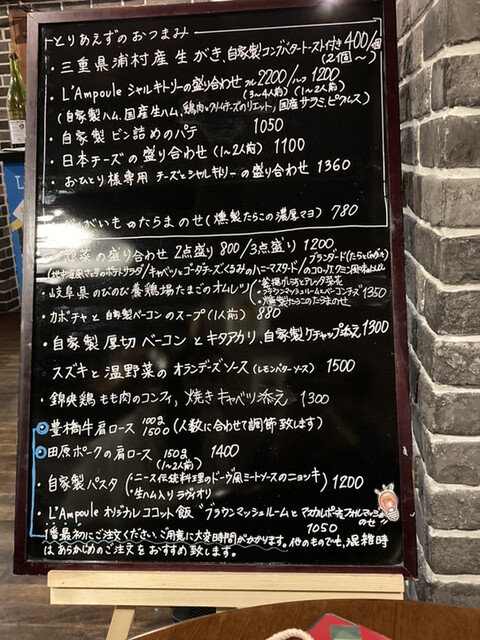 とりあえずのおつまみ
・三重県浦村産 生がき、自家製コンブバタートースト付き 400/個
(2個〜)
・L'Ampoule シャルキトリーの盛り合わせ フル2200/ハーフ1200
(3〜4人前) (1〜2人前)
(自家製ハム、国産生ハム、鶏肉とクリームチーズのリエット、国産サラミ、ピクルス)
・自家製 ビン詰めのパテ 1050
・日本チーズの盛り合わせ(1〜2人前) 1100
・おひとり様専用 チーズとシャルキトリーの盛り合わせ 1360
がいものたらまのせ(燻製たらこの濃厚マヨ) 780
惣菜の盛り合わせ 2点盛り 800/3点盛り 1200
・岐阜県のびのび養鶏場たまごのオムレツ
1350
・燻製たらこのたらまのせ
・カボチャと自家製ベーコンのスープ(1人前) 880
・自家製厚切ベーコンとキタアカリ、自家製ケチャップ添え 1300
・スズキと温野菜のオランデーズソース(レモンバターソース) 1500
・錦爽鶏もも肉のコンフィ、焼きキャベツ添え 1300
豊橋牛肩ロース 100g 1500 (人数に合わせて調節致します)
田原ポークの肩ロース 150g 1400
(1〜2人前)
・自家製パスタ
・ニース伝統料理のドーブ風ミートソースのニョッキ
・生ハム入りラヴィオリ
1200
・L'Ampoule オリジナルココット飯 "ブラウンマッシュルームとマスカルポーネ
のせ"
1050
1番最初にご注文ください、ご用意に大変時間がかかります。他のものでも、混雑時
はあらかじめのご注文をおすすめ致します。